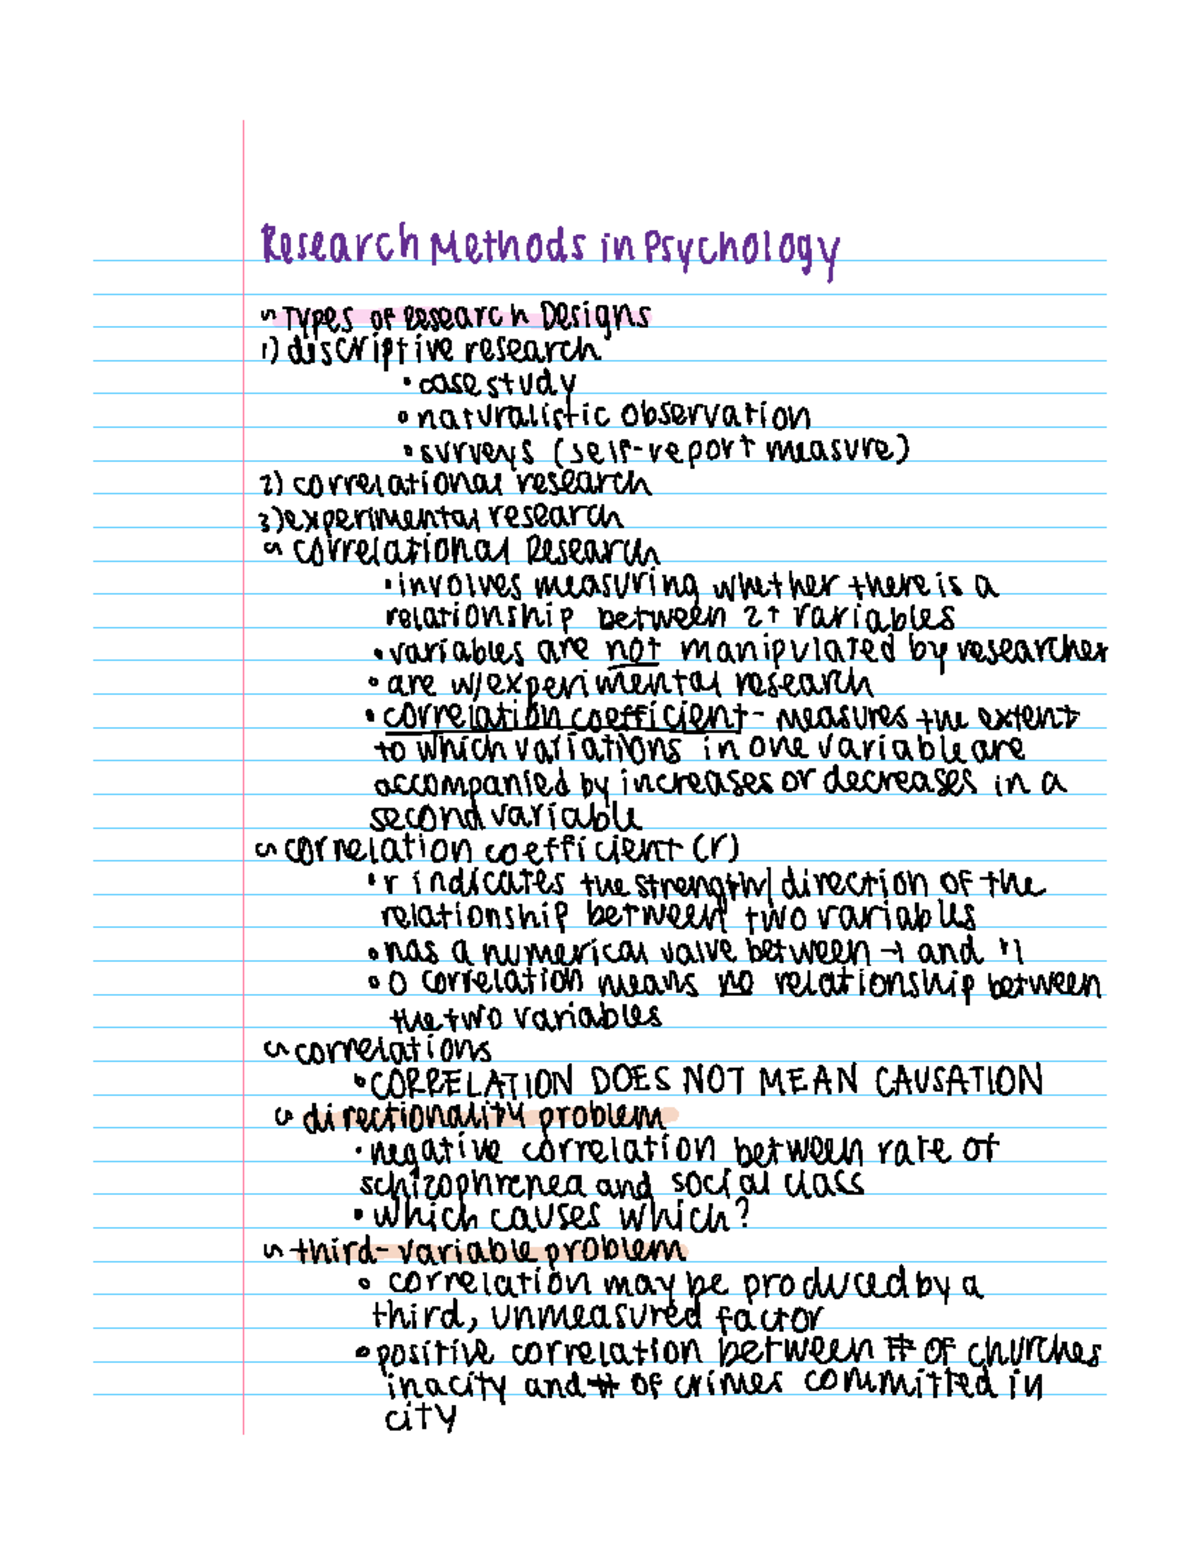 Research Methods in Psychology
~ Types of Research Designs
1) discriptive research
• case study
• naturalistic observation
• surveys (self-report measure)
2) correlational research
3) experimental research
~ correlational Research
• involves measuring whether there is a
relationship between 2+ variables
• variables are not manipulated by researcher
• are w/experimental research
• correlation coefficient - measures the extent
to which variations in one variable are
accompanied by increases or decreases in a
second variable
~ correlation coefficient (r)
• r indicates the strength/direction of the
relationship between two variables
• has a numerical value between -1 and +1
• 0 correlation means no relationship between
the two variables
~ correlations
• CORRELATION DOES NOT MEAN CAUSATION
~ directionality problem
• negative correlation between rate of
schizophrenea and social class
• which causes which?
~ third-variable problem
• correlation may be produced by a
third, unmeasured factor
• positive correlation between # of churches
in a city and # of crimes committed in
city